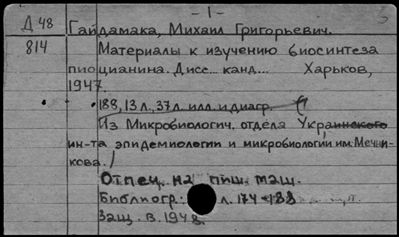 - 1 -
Д 48 Гайдамака, Михаил Григорьевич.
814 Материалы к изучению биосинтеза
пиоцианина. Дисс... канд... Харьков,
1947.
188, 13 л., 37 л. илл. и диагр.
(Из Микробиологич. отдела Украинского
ин-та эпидемиологии и микробиологии им. Мечни-
кова.)
Отпеч. на пиш. маш.
Библиогр.: л. 174-188
Защ. в 1948.